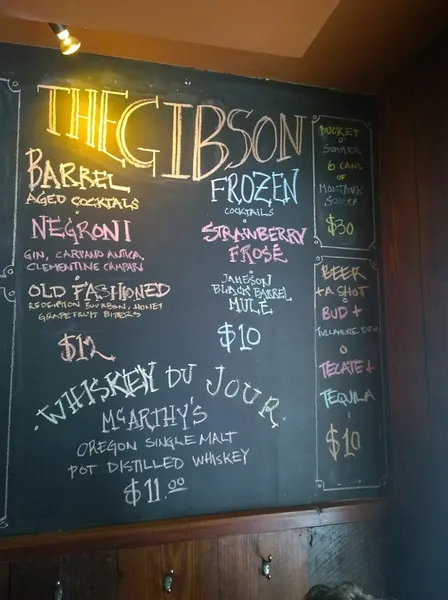 THE GIBSON
BARREL
AGED COCKTAILS
NEGRONI
GIN, CARPANO ANTICA,
CLEMENTINE CAMPARI
OLD FASHIONED
REDEMPTION BOURBON, HONEY
GRAPEFRUIT BITTERS
$12
FROZEN
COCKTAILS
STRAWBERRY
FROSÉ
JAMESON
BLACK BARREL
MULE
$10
WHISKEY DU JOUR
McARTHY'S
OREGON SINGLE MALT
POT DISTILLED WHISKEY
$11.00
BUCKET
OF
SUMMER
6 CANS
OF
MONTAUK
SUMMER
$30
BEER
+ A SHOT
BUD +
TULLAMORE DEW
O
TECATE +
TEQUILA
$10